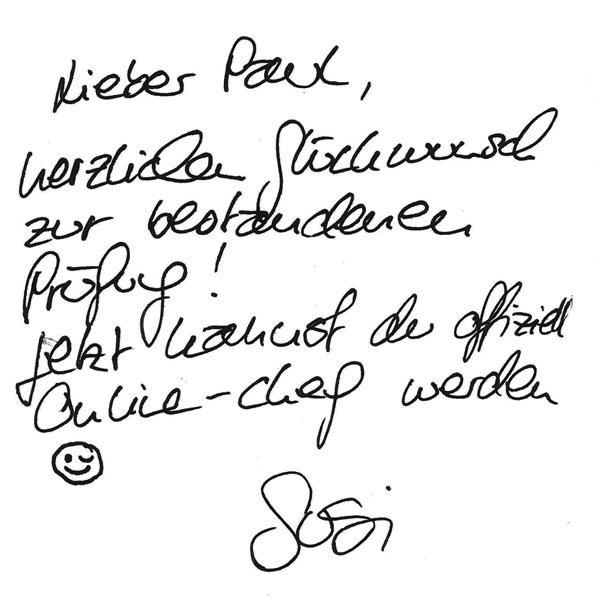 Lieber Paul,
herzlichen Glückwunsch
zur bestandenen
Prüfung!
Jetzt kannst du offiziell
Online-Chef werden
😉
Susi